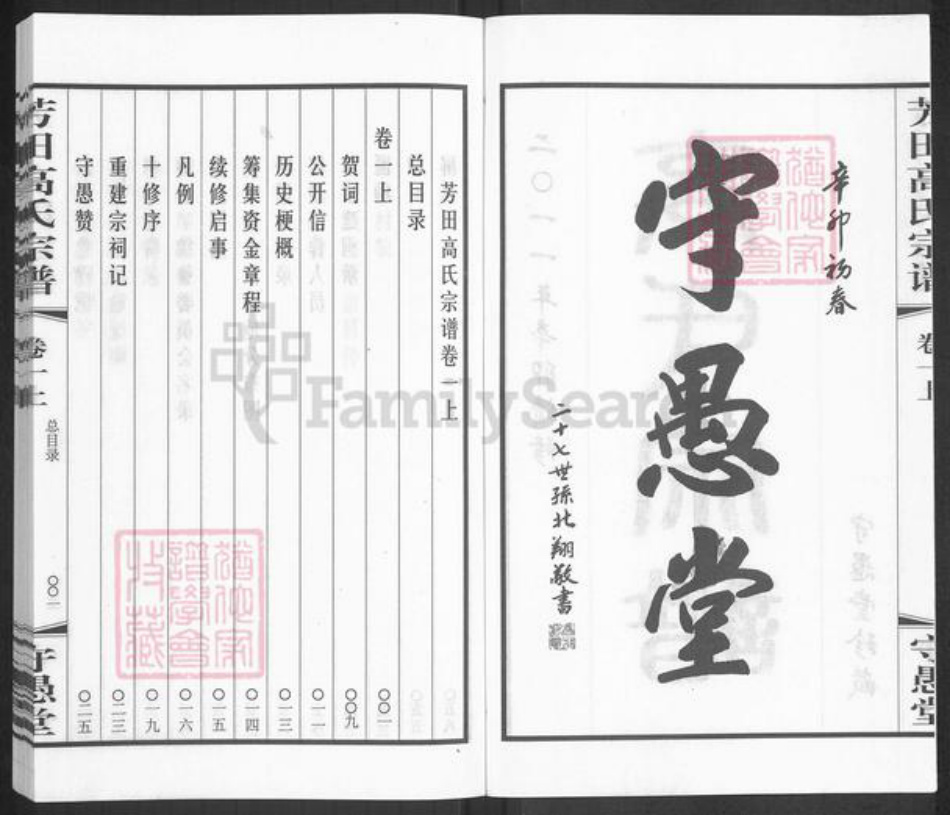 芳田高氏宗谱
卷一上
守愚堂
辛卯初春
守愚堂
二十七世孫北翔敬書
芳田高氏宗谱卷一上
总目录
卷一上 〇〇一
贺词 〇〇九
公开信 〇一一
历史梗概 〇一三
筹集资金章程 〇一四
续修启事 〇一五
凡例 〇一六
十修序 〇一九
重建宗祠记 〇二三
守愚赞 〇二五
芳田高氏宗谱
卷一上
总目录
〇〇一
守愚堂
猶他家
譜學會
收藏
FamilySearch